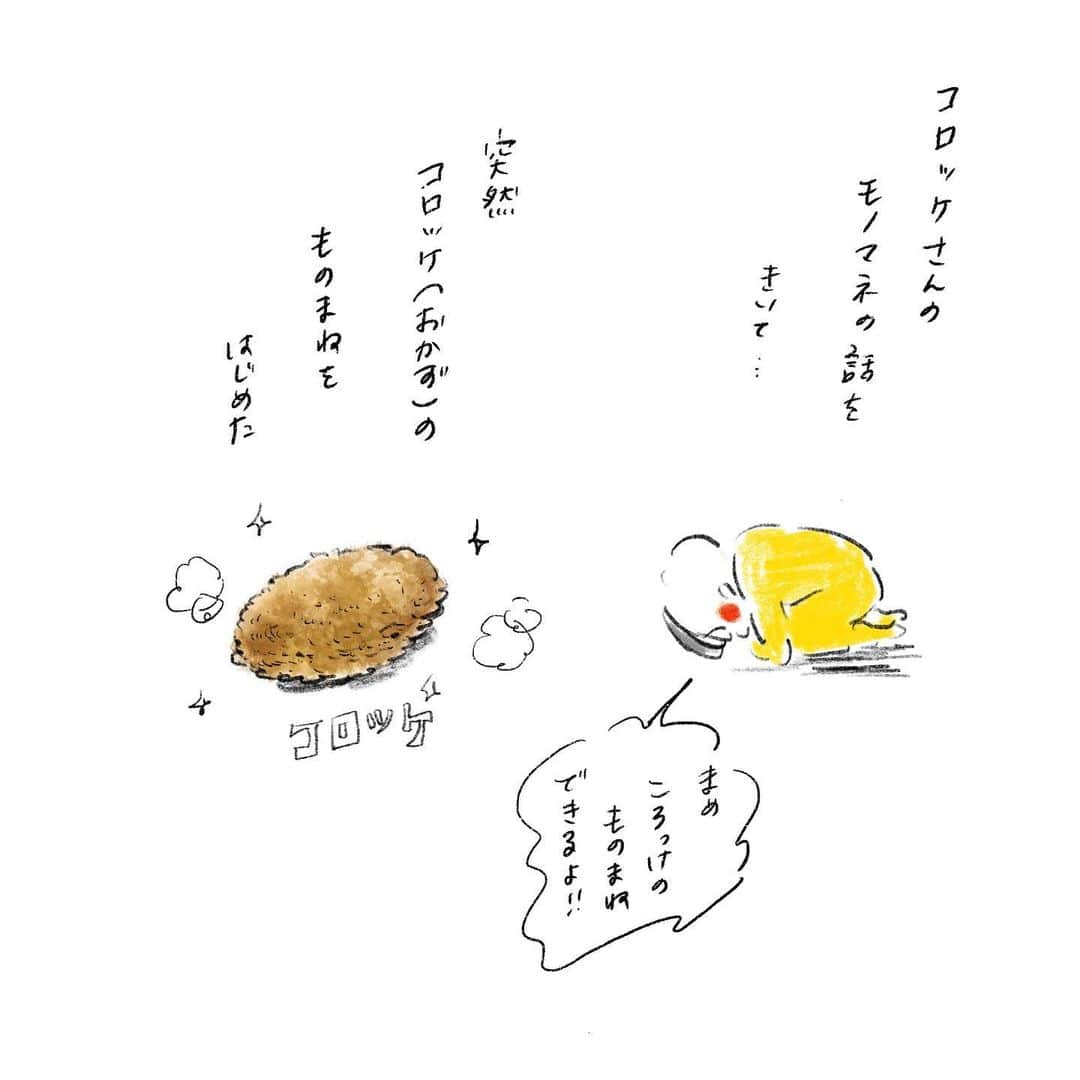 コロッケさんの
モノマネの話を
きいて…
突然
コロッケ(おかず)の
ものまねを
はじめた
コロッケ
まめ
ころっけの
ものまね
できるよ!!